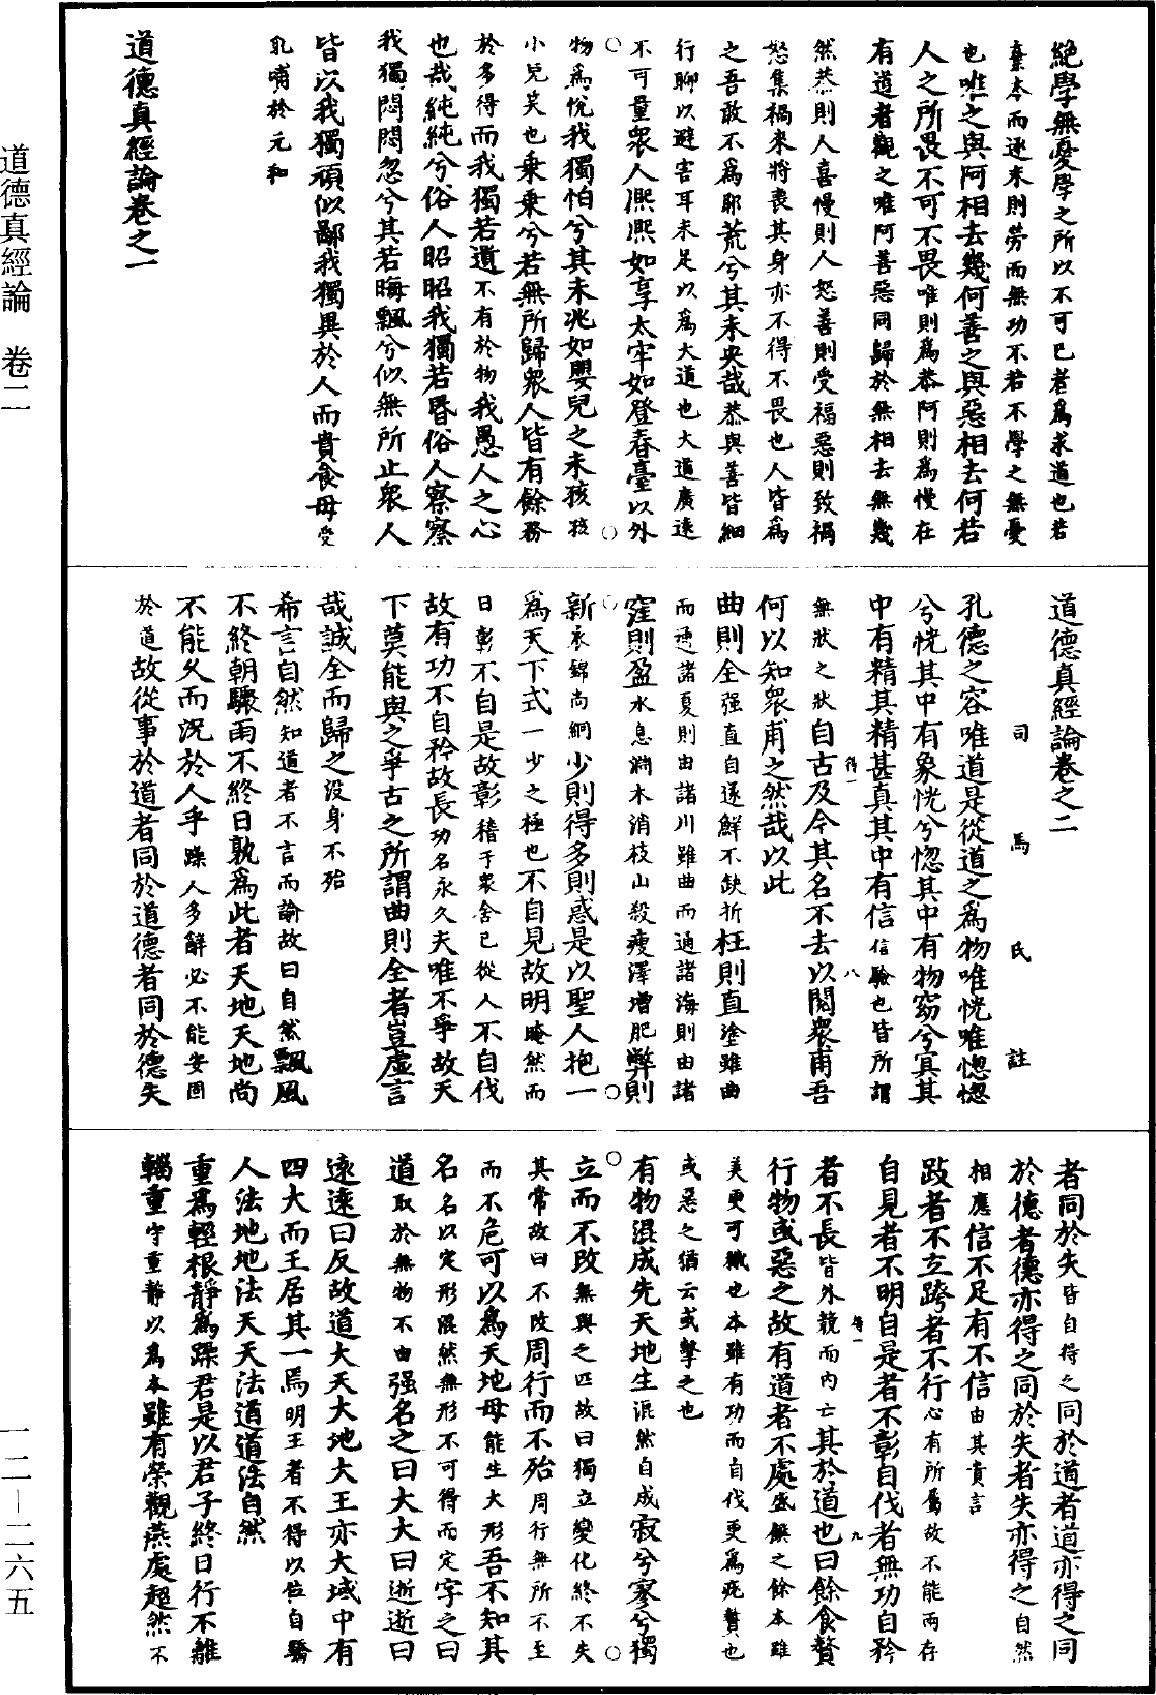 絕學無憂學之所以不可已者為求道也若
棄本而逐末則勞而無功不若不學之無憂
也唯之與阿相去幾何善之與惡相去何若
人之所畏不可不畏唯則為恭阿則為慢在
有道者觀之唯阿善惡同歸於無相去無幾
然恭則人喜慢則人怒善則受福惡則致禍
怒集禍來將喪其身亦不得不畏也人皆為
之吾敢不為耶荒兮其未央哉恭與善皆細
行聊以避害耳未足以為大道也大道廣遠
不可量眾人熙熙如享太牢如登春臺以外
物為悅我獨怕兮其未兆如嬰兒之未孩孩
小兒笑也乘乘兮若無所歸眾人皆有餘務
於多得而我獨若遺不有於物我愚人之心
也哉純純兮俗人昭昭我獨若昏俗人察察
我獨悶悶忽兮其若晦飄兮似無所止眾人
皆以我獨頑似鄙我獨異於人而貴食母受
乳哺於元和
道德真經論卷之一
道德真經論卷之二
司馬氏註
孔德之容唯道是從道之為物唯恍唯惚惚
兮恍其中有象恍兮惚其中有物窈兮冥其
中有精其精甚真其中有信信驗也皆所謂
無狀之狀自古及今其名不去以閱眾甫吾
何以知眾甫之然哉以此
曲則全強直自遂鮮不缺折枉則直塗雖曲
而通諸夏則由諸川雖曲而通諸海則由諸
窪則盈水息淵木消枝山殺瘦澤增肥弊則
新衣錦尚絅少則得多則惑是以聖人抱一
為天下式一少之極也不自見故明晻然而
日彰不自是故彰稽于眾舍己從人不自伐
故有功不自矜故長功名永久夫唯不爭故天
下莫能與之爭古之所謂曲則全者豈虛言
哉誠全而歸之沒身不殆
希言自然知道者不言而諭故曰自然飄風
不終朝驟雨不終日孰為此者天地天地尚
不能久而況於人乎躁人多辭必不能安固
於道故從事於道者同於道德者同於德失
得一
八
者同於失皆自得之同於道者道亦得之同
於德者德亦得之同於失者失亦得之自然
相應信不足有不信由其貴言
跂者不立跨者不行心有所屬故不能兩存
自見者不明自是者不彰自伐者無功自矜
者不長皆外競而內亡其於道也曰餘食贅
行物或惡之故有道者不處盛饌之餘本雖
美更可穢也本雖有功而自伐更為疣贅也
或惡之猶云或擊之也
有物混成先天地生混然自成寂兮寥兮獨
立而不改無與之匹故曰獨立變化終不失
其常故曰不改周行而不殆周行無所不至
而不危可以為天地母能生大形吾不知其
名名以定形混然無形不可得而定字之曰
道取於無物不由強名之曰大大曰逝逝曰
遠遠曰反故道大天大地大王亦大域中有
四大而王居其一焉明王者不得以位自驕
人法地地法天天法道道法自然
重為輕根靜為躁君是以君子終日行不離
輜重守重靜以為本雖有榮觀燕處超然不
得一
九
道德真經論 卷二
一二—二六五